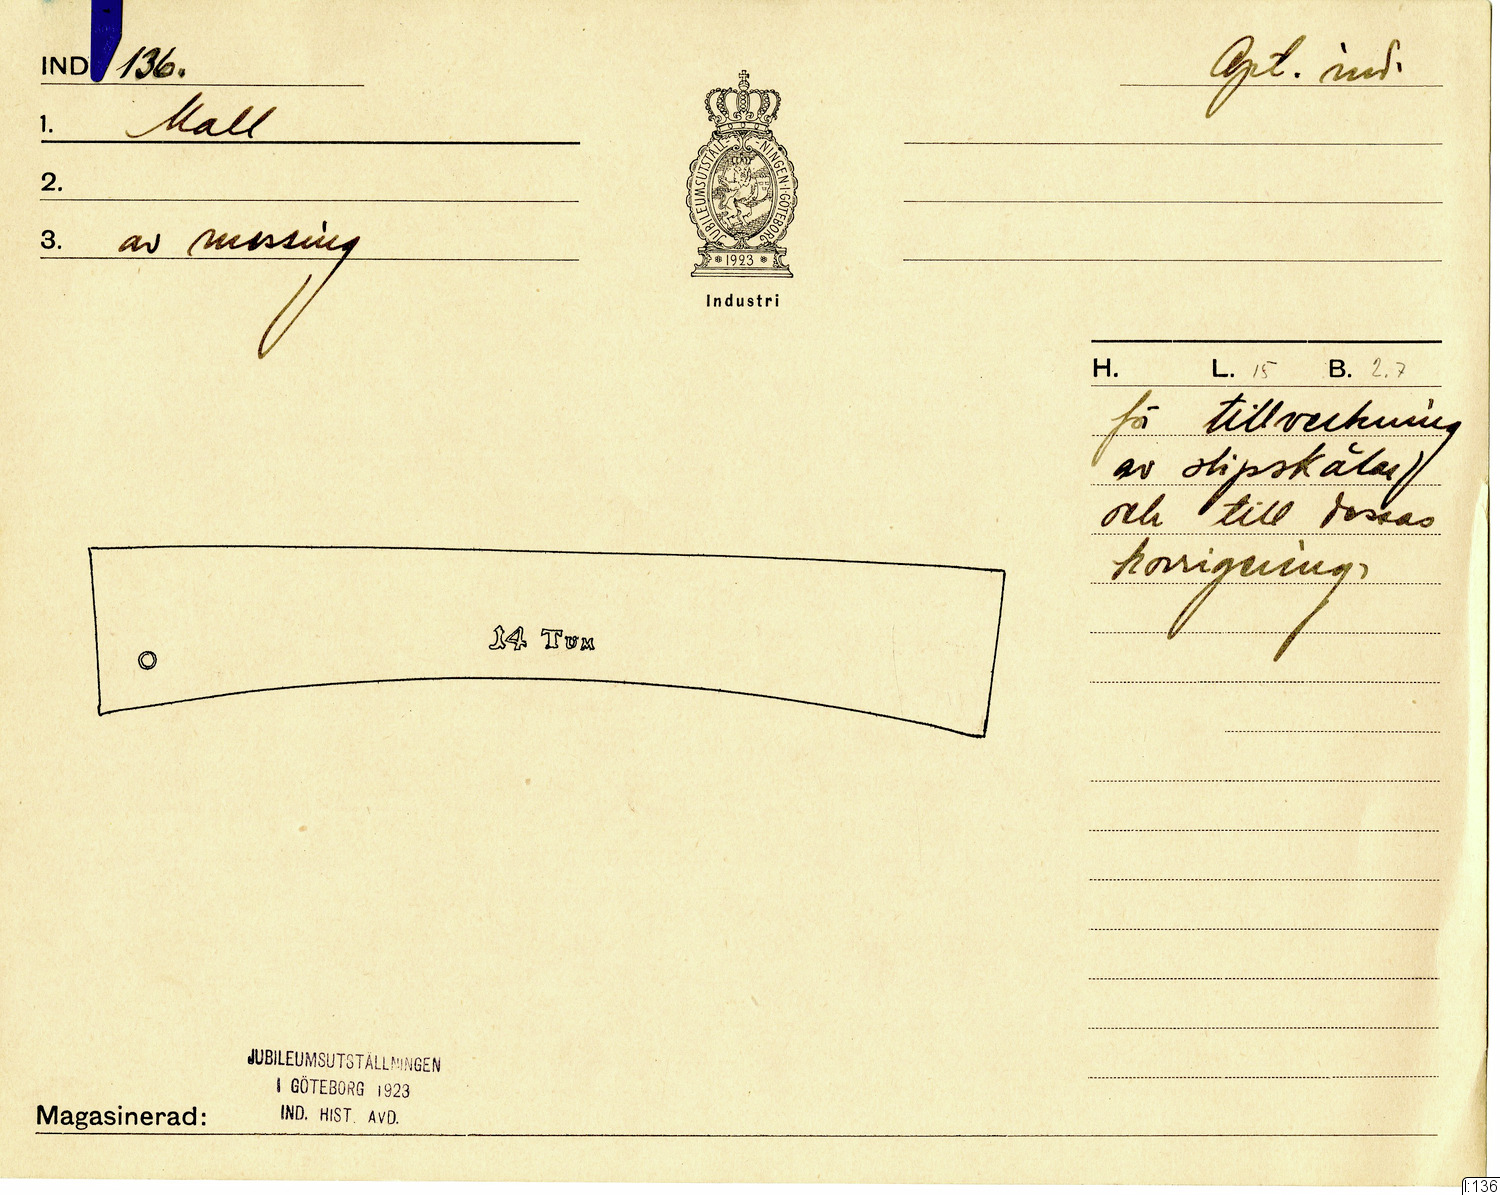 IND 136.
Opt. ind.
1. Mall
2.
3. av messing
JUBILEUMSUTSTÄLL-NINGEN·I·GÖTEBORG
1923
Industri
H. L. 15 B. 2.7
för tillverkning
av slipskålar
och till dessas
korrigering.
14 TUM
JUBILEUMSUTSTÄLLNINGEN
I GÖTEBORG 1923
IND. HIST. AVD.
Magasinerad:
I:136